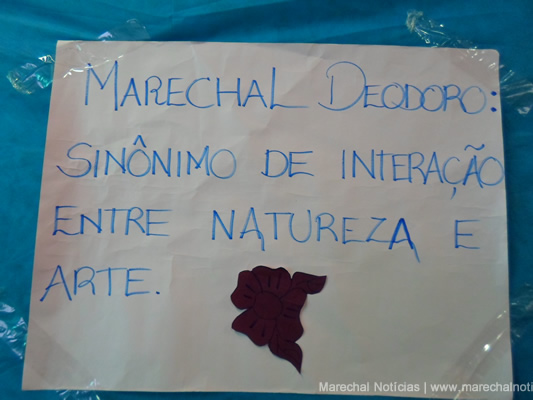 MARECHAL DEODORO:
SINÔNIMO DE INTERAÇÃO
ENTRE NATUREZA E
ARTE.
Marechal Notícias | www.marechalnoti